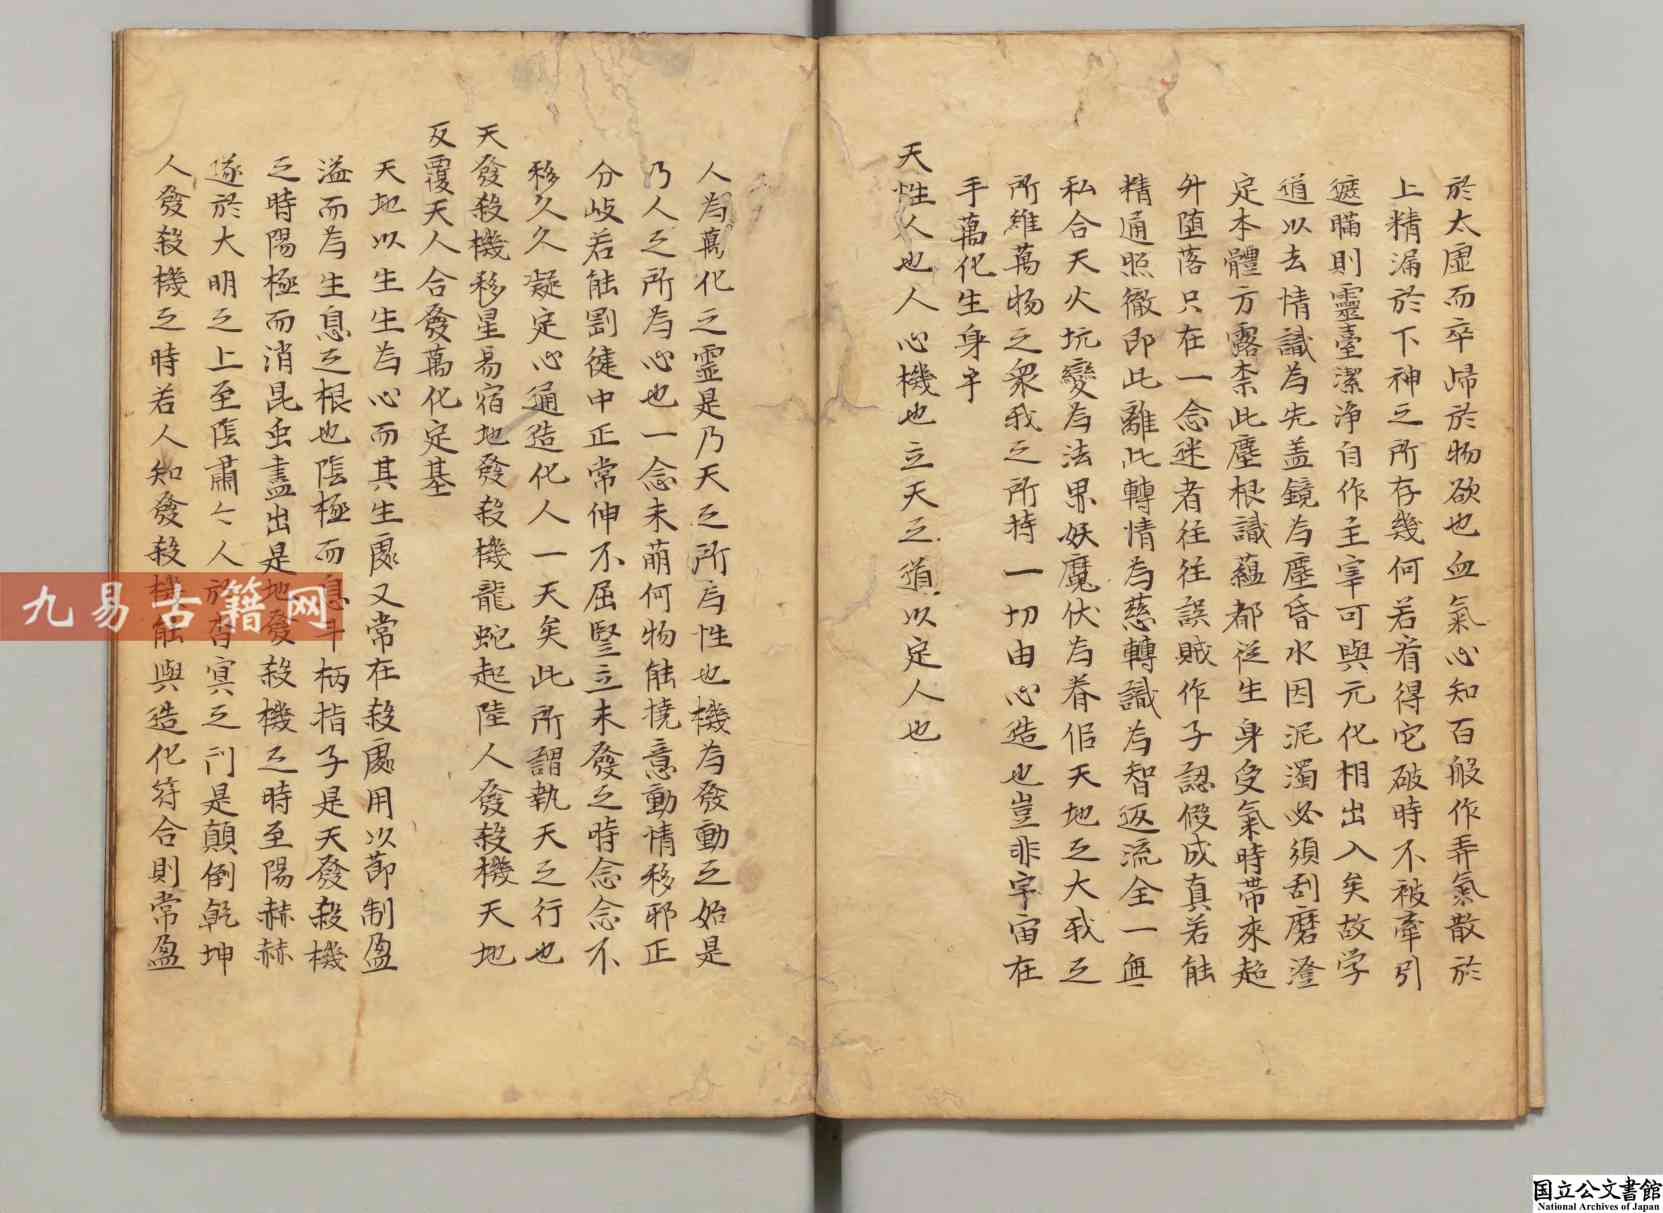 於太虛而卒歸於物欲也血氣心知百般作弄氣散於
上精漏於下神之所存幾何若看得它破時不被牽引
遮瞞則靈臺潔淨自作主宰可與元化相出入矣故学
道以去情識為先盖鏡為塵昏水因泥濁必須刮磨澄
定本體方露柰此塵根識蘊都從生身受氣時帶來超
升墮落只在一念迷者往往誤賊作子認假成真若能
精通照徹即此離此轉情為慈轉識為智返流全一無
私合天火坑變為法界妖魔伏為眷侶天地之大我之
所維萬物之衆我之所持一切由心造也豈非宇宙在
手萬化生身乎
天性人也人心機也立天之道以定人也
人為萬化之霊是乃天之所為性也機為發動之始是
乃人之所為心也一念未萌何物能撓意動情移邪正
分岐若能劄徤中正常伸不屈豎立未發之時念念不
移久久凝定心通造化人一天矣此所謂執天之行也
天發殺機移星易宿地發殺機龍蛇起陸人發殺機天地
反覆天人合發萬化定基
天地以生生為心而其生處又常在殺處用以節制盈
溢而為生息之根也陰極而息斗柄指子是天發殺機
之時陽極而消昆虫盡出是地發殺機之時至陽赫赫
遂於大明之上至陰肅々人於杳冥之门是顛倒乾坤
人發殺機之時若人知發殺機能與造化符合則常盈
九易古籍网
国立公文書館
National Archives of Japan